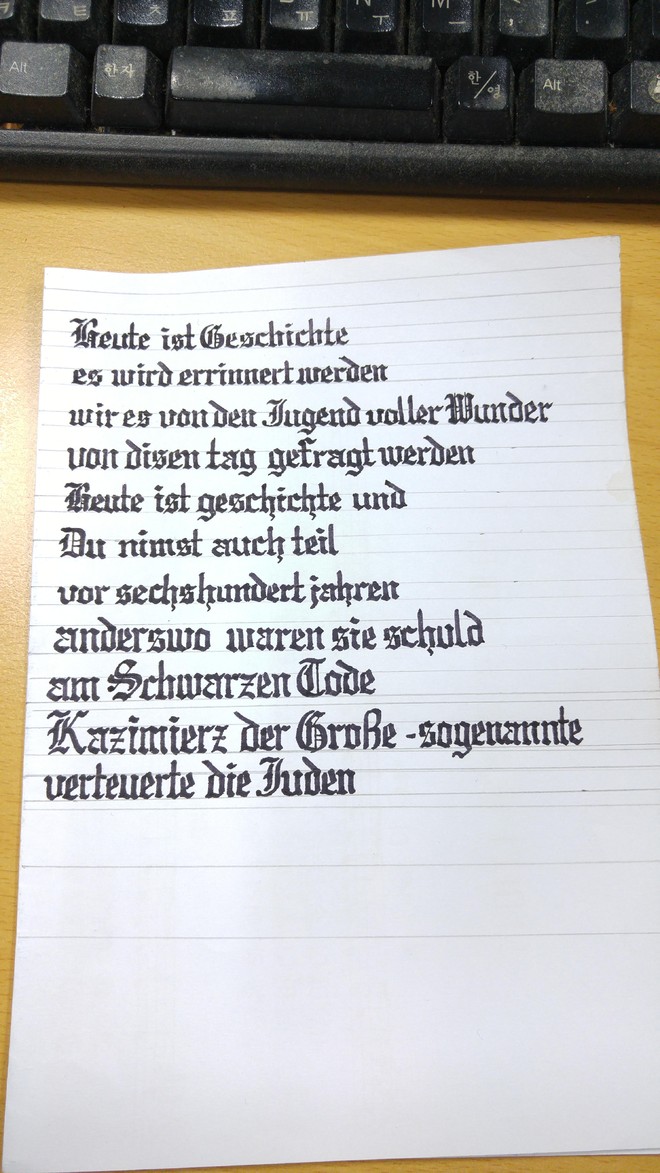 ㅋ ㅌ ㅊ ㅍ ㅠ N ㅜ M ㅡ < , > .
Alt 한자 한/영 Alt
Heute ist Geschichte
es wird errinnert werden
wir es von den Jugend voller Wunder
von disen tag gefragt werden
Heute ist geschichte und
Du nimst auch teil
vor sechshundert jahren
anderswo waren sie schuld
am Schwarzen Tode
Kazimierz der Große - sogenannte
verteuerte die Juden